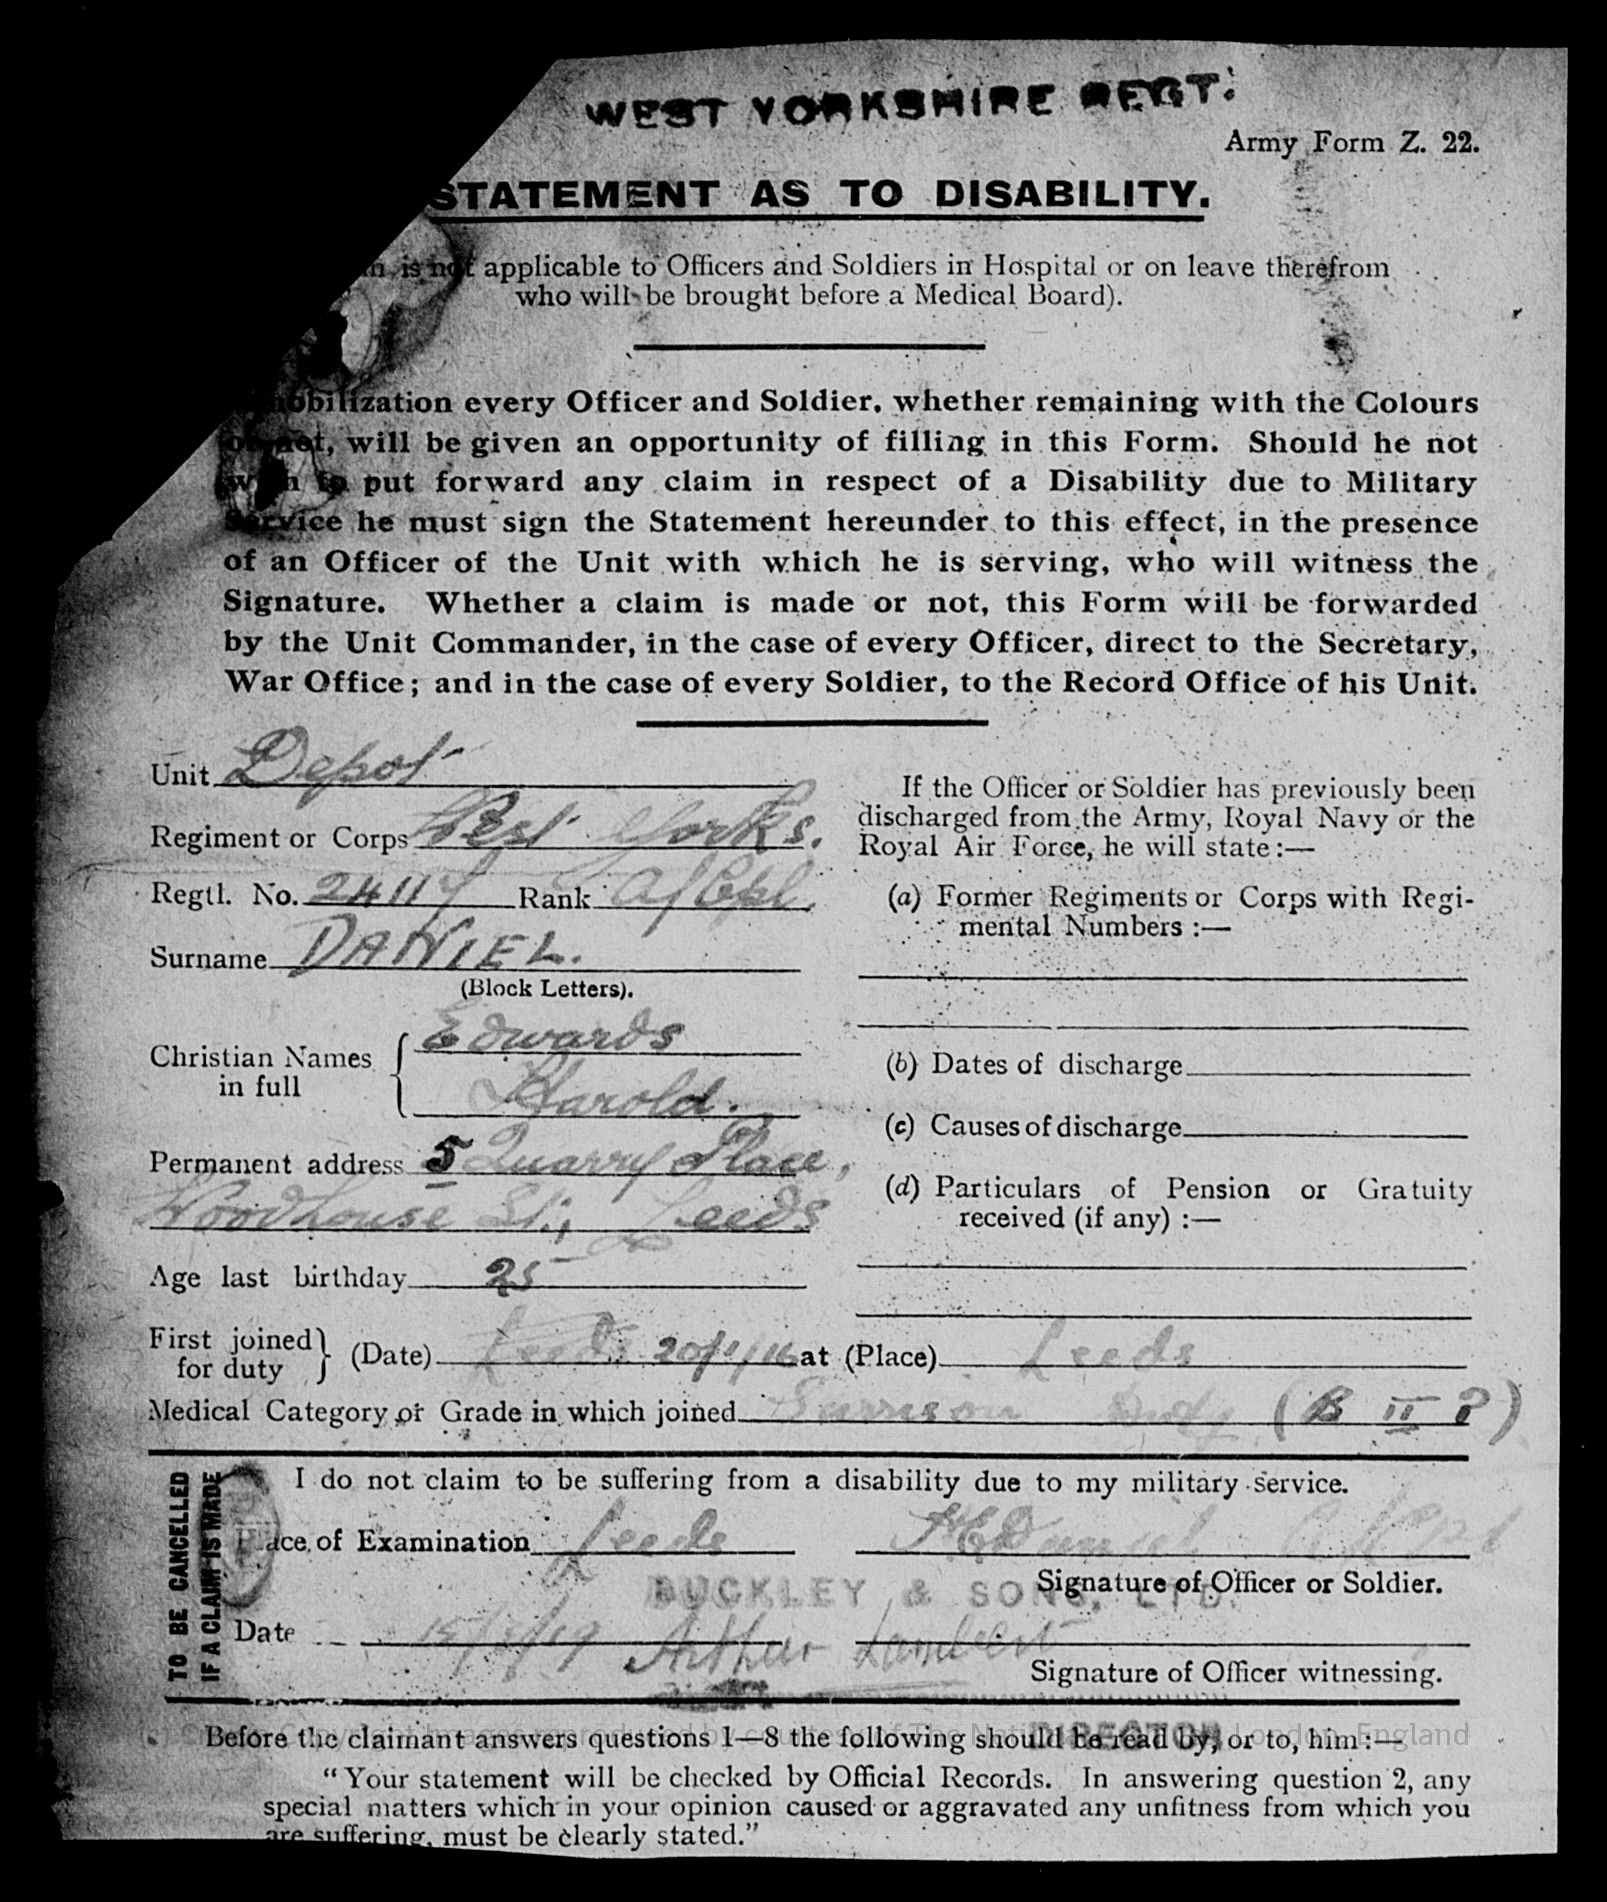 WEST YORKSHIRE REGT.
Army Form Z. 22.
STATEMENT AS TO DISABILITY.
is not applicable to Officers and Soldiers in Hospital or on leave therefrom
who will be brought before a Medical Board).
obilization every Officer and Soldier, whether remaining with the Colours
or not, will be given an opportunity of filling in this Form. Should he not
wish to put forward any claim in respect of a Disability due to Military
Service he must sign the Statement hereunder to this effect, in the presence
of an Officer of the Unit with which he is serving, who will witness the
Signature. Whether a claim is made or not, this Form will be forwarded
by the Unit Commander, in the case of every Officer, direct to the Secretary,
War Office; and in the case of every Soldier, to the Record Office of his Unit.
Unit Depot
Regiment or Corps West Yorks.
Regtl. No. 24117 Rank A/Cpl.
Surname DANIEL.
(Block Letters).
Christian Names in full { Edwards
Harold.
Permanent address 5 Quarry Place,
Woodhouse St., Leeds
Age last birthday 25
If the Officer or Soldier has previously been
discharged from the Army, Royal Navy or the
Royal Air Force, he will state:—
(a) Former Regiments or Corps with Regi-
mental Numbers :—
(b) Dates of discharge
(c) Causes of discharge
(d) Particulars of Pension or Gratuity
received (if any) :—
First joined for duty } (Date) Leeds 20/1/16 at (Place) Leeds
Medical Category or Grade in which joined Garrison Duty (B II ?)
TO BE CANCELLED
IF A CLAIM IS MADE
I do not claim to be suffering from a disability due to my military service.
Place of Examination Leeds
Signature of Officer or Soldier.
BUCKLEY & SONS, LTD.
Date Arthur Lambert
Signature of Officer witnessing.
DIRECTOR
Before the claimant answers questions 1—8 the following should be read by, or to, him :—
"Your statement will be checked by Official Records. In answering question 2, any
special matters which in your opinion caused or aggravated any unfitness from which you
are suffering, must be clearly stated."